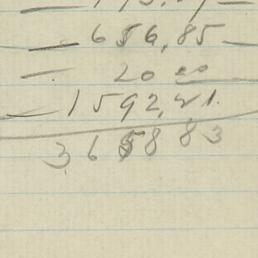 — 656,85 —
— 20 00
— 1592,21.
3,658 83